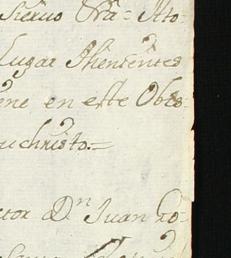 Siervo Srã= Ato-
Lugar Thenientes
ene en este Obis-
uchristo.=
ctor Dn Juan Ro-